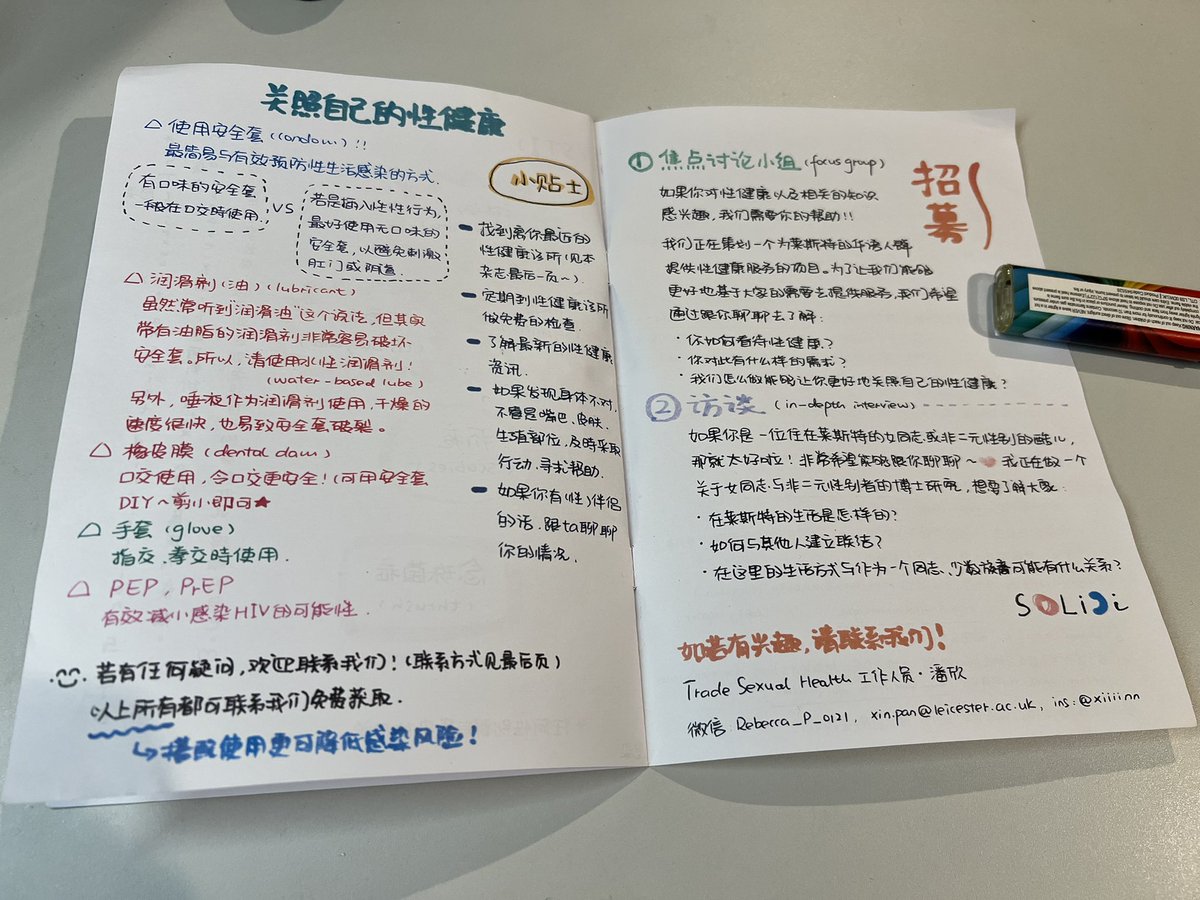 关照自己的性健康
△ 使用安全套 (condom) !!
最简易与有效预防性生活感染的方式.
有口味的安全套
一般在口交時使用.
VS
若是插入性性行为,
最好使用无口味的
安全套,以避免刺激
肛门或阴道.
△ 润滑剂(油) (lubricant)
虽然常听到"润滑油"这个说法,但其实
常有油脂的润滑剂非常容易破坏
安全套。所以,请使用水性润滑剂!
(water-based lube)
另外,唾液作为润滑剂使用,干燥的
速度很快,也易致安全套破裂。
△ 橡皮膜 (dental dam)
口交使用,令口交更安全!(可用安全套
DIY~剪小即可★
△ 手套 (glove)
指交、拳交時使用.
△ PEP, PrEP
有效减小感染HIV的可能性.
小贴士
找到离你最近的
性健康诊所(见本
杂志最后一页~)
定期到性健康诊所
做免费的检查.
了解最新的性健康
资讯.
如果发现身体不对,
不管是嘴巴、皮肤、
生殖部位,及時采取
行动、寻求帮助.
如果你有(性)伴侣
的话,跟ta聊聊
你的情况.
若有任何疑问,欢迎联系我们!(联系方式见最后页)
以上所有都可联系我们免费获取.
↳搭配使用更可降低感染风险!
招募
① 焦点讨论小组 (focus group)
如果你对性健康以及相关的知识
感兴趣,我们需要你的帮助!!
我们正在策划一个为莱斯特的华语人群
提供性健康服务的项目。为了让我们能够
更好地基于大家的需要去提供服务,我们希望
通过跟你聊聊去了解:
· 你如何看待性健康?
· 你对此有什么样的需求?
· 我们怎么做能够让你更好地关照自己的性健康?
② 访谈 (in-depth interview)
如果你是一位住在莱斯特的女同志或非二元性别的酷儿,
那就太好啦!非常希望能够跟你聊聊~ 我正在做一个
关于女同志与非二元性别者的博士研究,想要了解大家:
· 在莱斯特的生活是怎样的?
· 如何与其他人建立联结?
· 在这里的生活方式与作为一个同志、少数族裔可能有什么关系?
SOLiDi
如若有兴趣,请联系我们!
Trade Sexual Health 工作人员·潘欣
微信 Rebecca_P_0121, xin.pan@leicester.ac.uk, ins:@xiiiinn